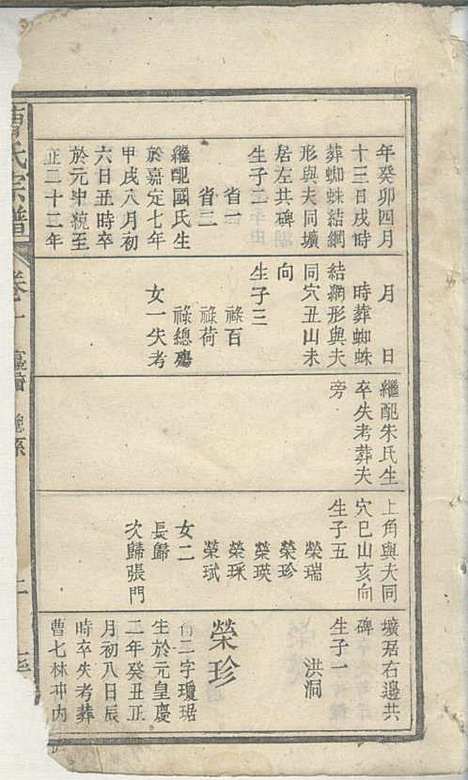 年癸卯四月
十三日戌時
葬蜘蛛結網
形與夫同壙
居左共碑
生子二
省一
省二
繼配國氏生
於嘉定七年
甲戌八月初
六日丑時卒
於元中統至
正二十二年
月日
時葬蜘蛛
結網形與夫
同穴丑山未
向
生子三
祿百
祿荷
祿總殤
女一失考
繼配朱氏生
卒失考葬夫
旁
上角與夫同
穴巳山亥向
生子五
榮瑞
榮珍
榮瑛
榮琛
榮珷
女二
長歸
次歸張門
壙琚右邊共
碑
生子一
洪洞
榮珍
行二字瓊琚
生於元皇慶
二年癸丑正
月初八日辰
時卒失考葬
曹七林冲內
曹氏宗譜
卷十